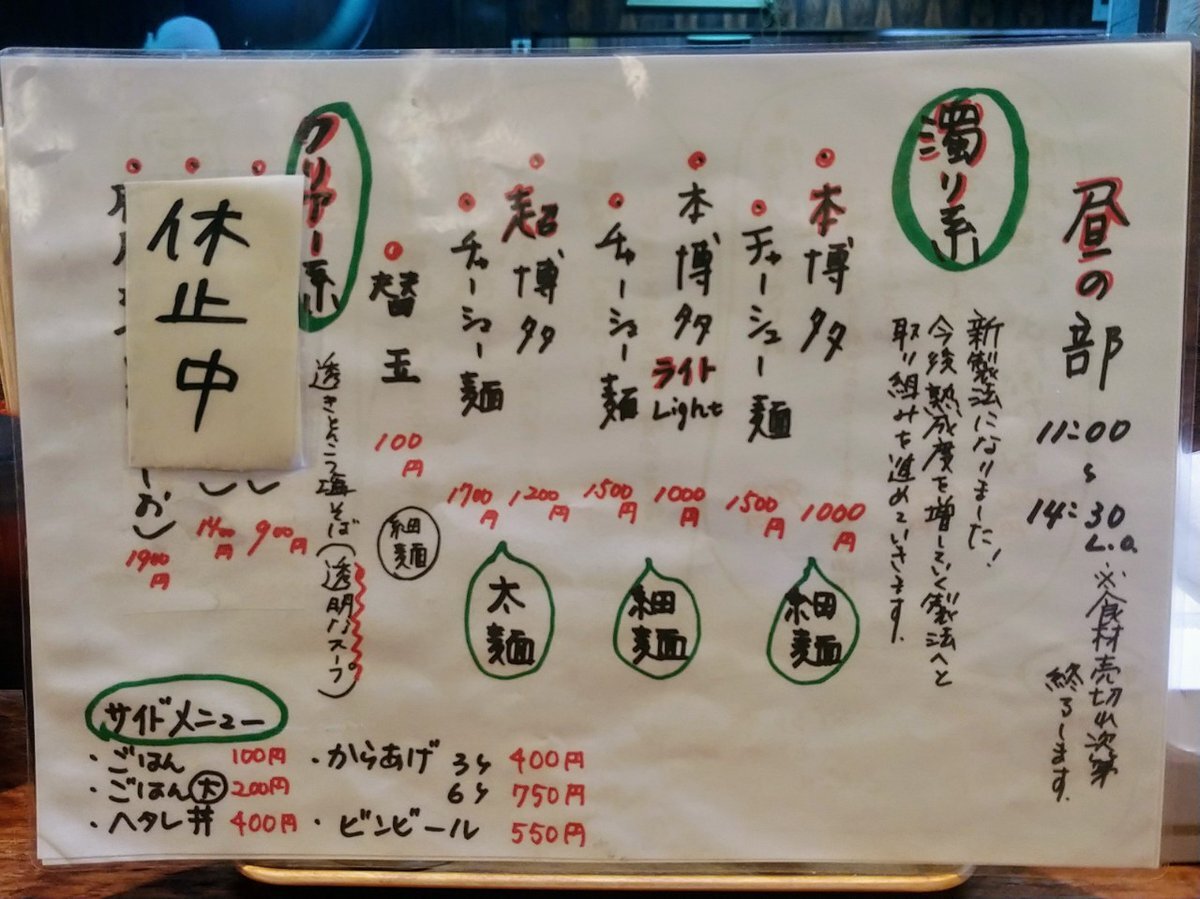 昼の部
11:00
〜
14:30
L.O.
※食材売切れ次第
終了します.
濁り系
新製法になりました!
今後熟成度を増していく製法へと
取り組みを進めていきます.
本博多 1000円
チャーシュー麺 1500円
細麺
本博多ライト Light 1000円
チャーシュー麺 1500円
細麺
超博多 1200円
チャーシュー麺 1700円
太麺
替玉 100円
細麺
クリアー系
透きとおる海そば(透明なスープ)
休止中
900円
1400円
1900円
サイドメニュー
・ごはん 100円
・ごはん大 200円
・ヘタレ丼 400円
・からあげ 3ケ 400円
6ケ 750円
・ビンビール 550円